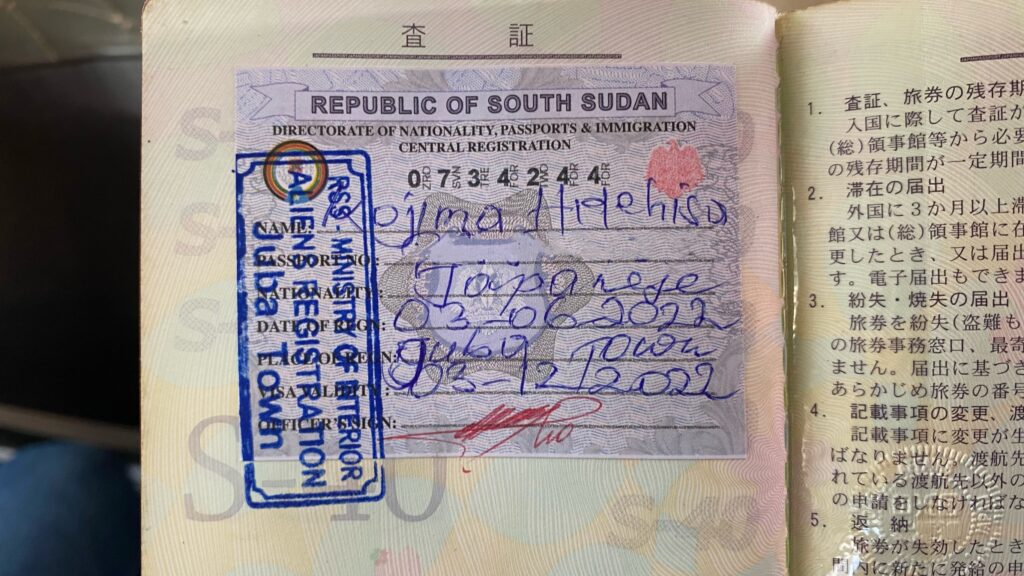 査 証
REPUBLIC OF SOUTH SUDAN
DIRECTORATE OF NATIONALITY, PASSPORTS & IMMIGRATION
CENTRAL REGISTRATION
0 ZRO 7 SVN 3 TRE 4 FOR 2 4 FOR 4 FOR
NAME: Kojima Hidehisa
PASSPORT NO:
NATIONALITY: Japanese
DATE OF REGN: 03.06.2022
PLACE OF REGN: Juba Town
VISA VALIDITY: 03-12/2022
OFFICER'S SIGN:
RSS - MINISTRY OF INTERIOR
ALIENS REGISTRATION
Juba Town
S-40
S-40
1. 査証、旅券の残存期
入国に際して査証が
(総)領事館等から必要
の残存期間が一定期間
2. 滞在の届出
外国に3か月以上滞
館又は(総)領事館に在
更したとき、又は届出
す。電子届出もできま
3. 紛失・焼失の届出
旅券を紛失(盗難も
の旅券事務窓口、最寄
ません。届出に基づき
あらかじめ旅券の番号
4. 記載事項の変更、渡
記載事項に変更が生
ばなりません。渡航先
れている渡航先以外の
の申請をしなければな
5. 返 納
旅券が失効したとき
間内に新たに発給の申